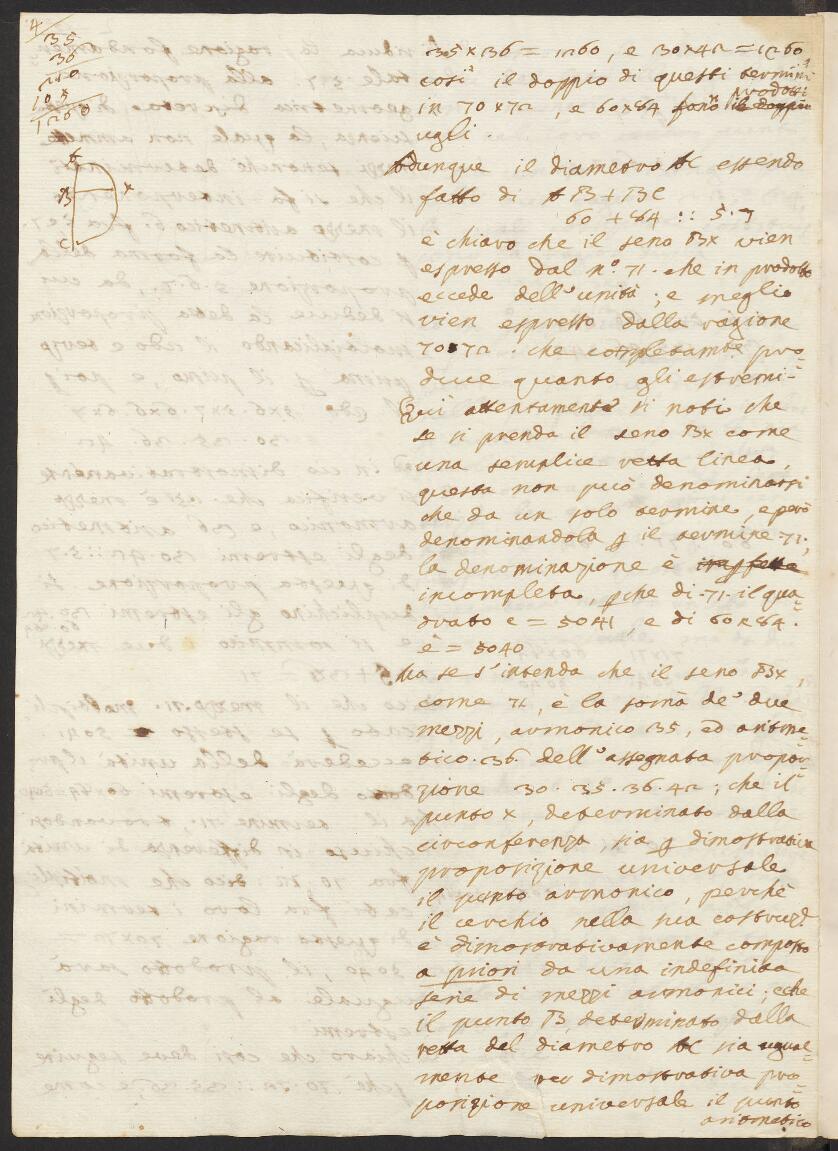 4
35
36
210
105
1260
A
B x
C
35x36 = 1260, e 30x42 = 1260
così il doppio di questi termini
in 70x72, e 60x84 sono prodotti
uguali.
Adunque il diametro AC essendo
fatto di AB + BC
60 + 84 :: 5. 7
è chiaro che il seno Bx vien
espresso dal n.º 71. che in prodotto
eccede dell'unità; e meglio
vien espresso dalla ragione
70.72. che completamte pro=
duce quanto gli estremi.
Qui attentamente si noti che
se si prenda il seno Bx come
una semplice retta linea,
questa non può denominarsi
che da un solo termine, e però
denominandola p il termine 71;
la denominazione è imperfetta
incompleta, pche di 71. il qua=
drato e = 5041 e di 60x84.
e = 5040
Ma se s'intenda che il seno Bx,
come 71, è la soma de' due
mezzi, armonico 35, ed aritme=
tico. 36 dell'assegnata propor=
zione 30. 35. 36. 42; che il
punto x, determinato dalla
circonferenza, sia p dimostrativa
proposizione universale
il punto armonico, perchè
il cerchio nella sua costruz.e
è dimostrativamente composto
a priori da una indefinita
serie di mezzi armonici; e che
il punto B, determinato dalla
retta del diametro AC sia ugual=
mente per dimostrativa pro=
posizione universale il punto
aritmetico